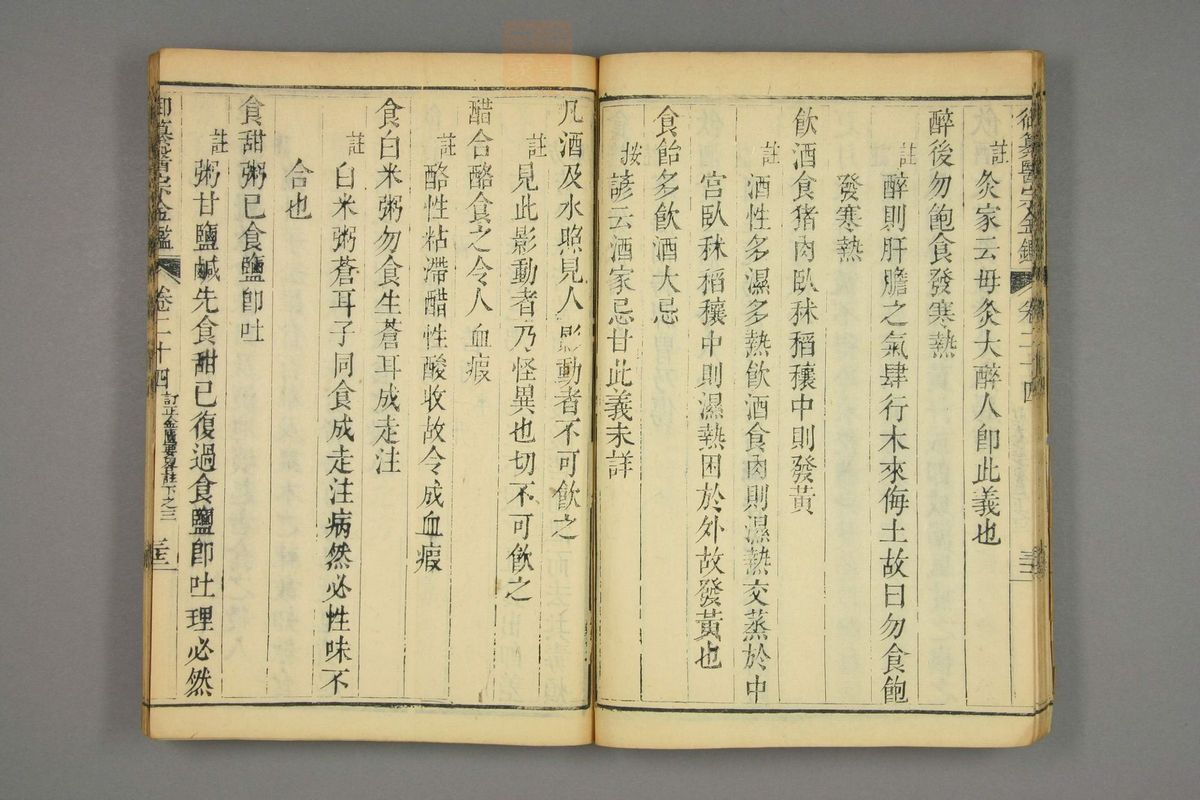 御纂醫宗金鑑 卷二十四
註灸家云毋灸大醉人卽此義也
醉後勿飽食發寒熱
註醉則肝膽之氣肆行木來侮土故曰勿食飽
發寒熱
飮酒食猪肉臥秫稻穰中則發黃
註酒性多濕多熱飮酒食肉則濕熱交蒸於中
宮臥秫稻穰中則濕熱困於外故發黃也
食飴多飮酒大忌
按諺云酒家忌甘此義未詳
凡酒及水照見人影動者不可飮之
註見此影動者乃怪異也切不可飮之
醋合酪食之令人血瘕
註酪性粘滯醋性酸收故令成血瘕
食白米粥勿食生蒼耳成走注
註白米粥蒼耳子同食成走注病然必性味不
合也
食甜粥已食鹽卽吐
註粥甘鹽鹹先食甜已復過食鹽卽吐理必然
御纂醫宗金鑑 卷二十四 訂正金匱要畧註下之三